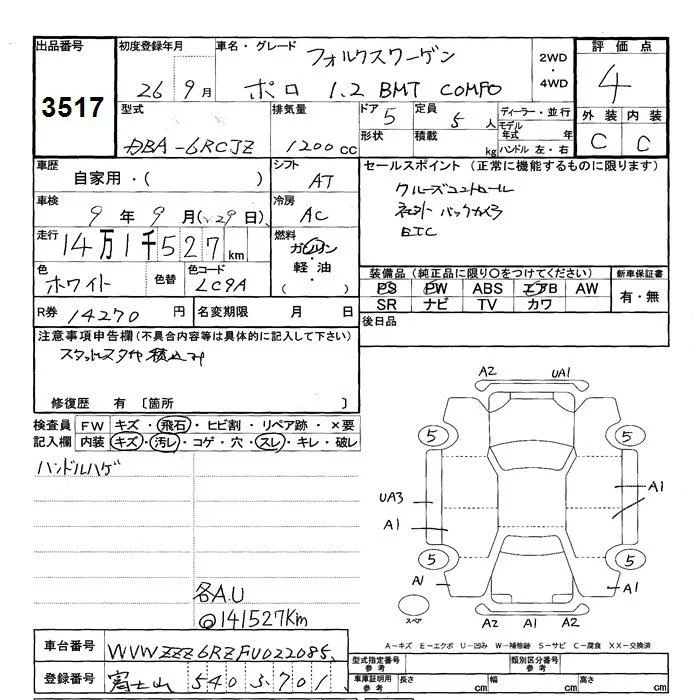 出品番号 3517
初度登録年月 26 9月
車名・グレード フォルクスワーゲン
ポロ 1.2 BMT COMFO
2WD
・
4WD
評価点 4
外装 内装
C C
型式 DBA-6RCJZ
排気量 1200cc
ドア 5
形状
定員 5人
積載 kg
ディーラー・並行
モデル年式 年
ハンドル 左・右
車歴 自家用・( )
シフト AT
車検 9年9月(29日)
冷房 AC
走行 14万1千527km
燃料 ガソリン
・
軽油
( ・ )
色 ホワイト
色替
色コード LC9A
セールスポイント (正常に機能するものに限ります)
クルーズコントロール
ネヴィ外 バックカメラ
ETC
装備品 (純正品に限り○をつけてください)
PS PW ABS エアB AW
SR ナビ TV カワ
新車保証書
有・無
R券 14270円
名変期限 月 日
後日品
注意事項申告欄 (不具合内容等は具体的に記入して下さい)
スタッドレスタイヤ積込み
修復歴 有 〔箇所 〕
検査員記入欄
FW キズ・飛石・ヒビ割・リペア跡・×要
内装 キズ・汚レ・コゲ・穴・スレ・キレ・破レ
ハンドルハゲ
各A.U
◎141527Km
A2 UA1
5 5
UA3 A1
A1
5 5
A1 A1
スペア
A2 A1 A2
A-キズ E-エクボ U-凹み W-補修跡 S-サビ C-腐食 XX-交換済
車台番号 WVWZZZ6RZFU022085
登録番号 富士山 540 ふ 701
型式指定番号 参考
類別区分番号 参考
車庫証明 参考
長さ cm
幅 cm
高さ cm